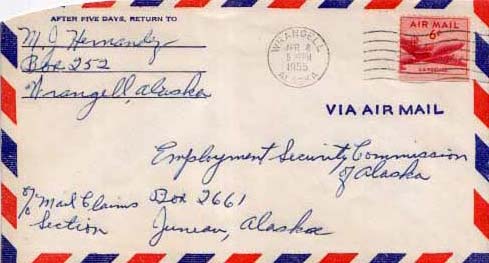 AFTER FIVE DAYS, RETURN TO
M J Hernandez
Box 252
Wrangell, Alaska
WRANGELL
APR 4
5 PM
1955
ALASKA
AIR MAIL
6¢
U.S. POSTAGE
VIA AIR MAIL
Employment Security Commission
of Alaska
c/o Mail Claims Box 2661
Section Juneau, Alaska